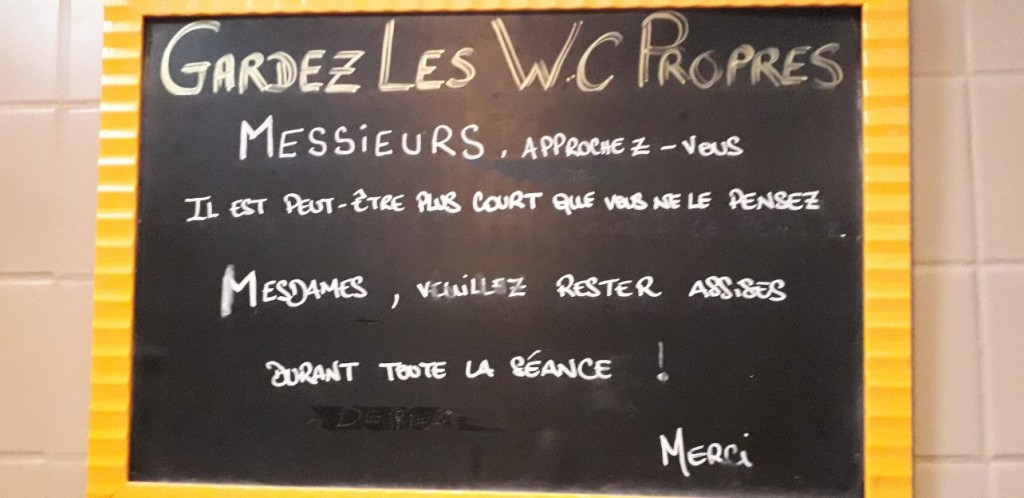 GARDEZ LES W.C PROPRES
MESSiEURS, APPROCHEZ-VOUS
IL EST PEUT-ÊTRE PLUS COURT QUE VOUS NE LE PENSEZ
MESDAMES, VEUILLEZ RESTER ASSISES
DURANT TOUTE LA SÉANCE !
MERCi